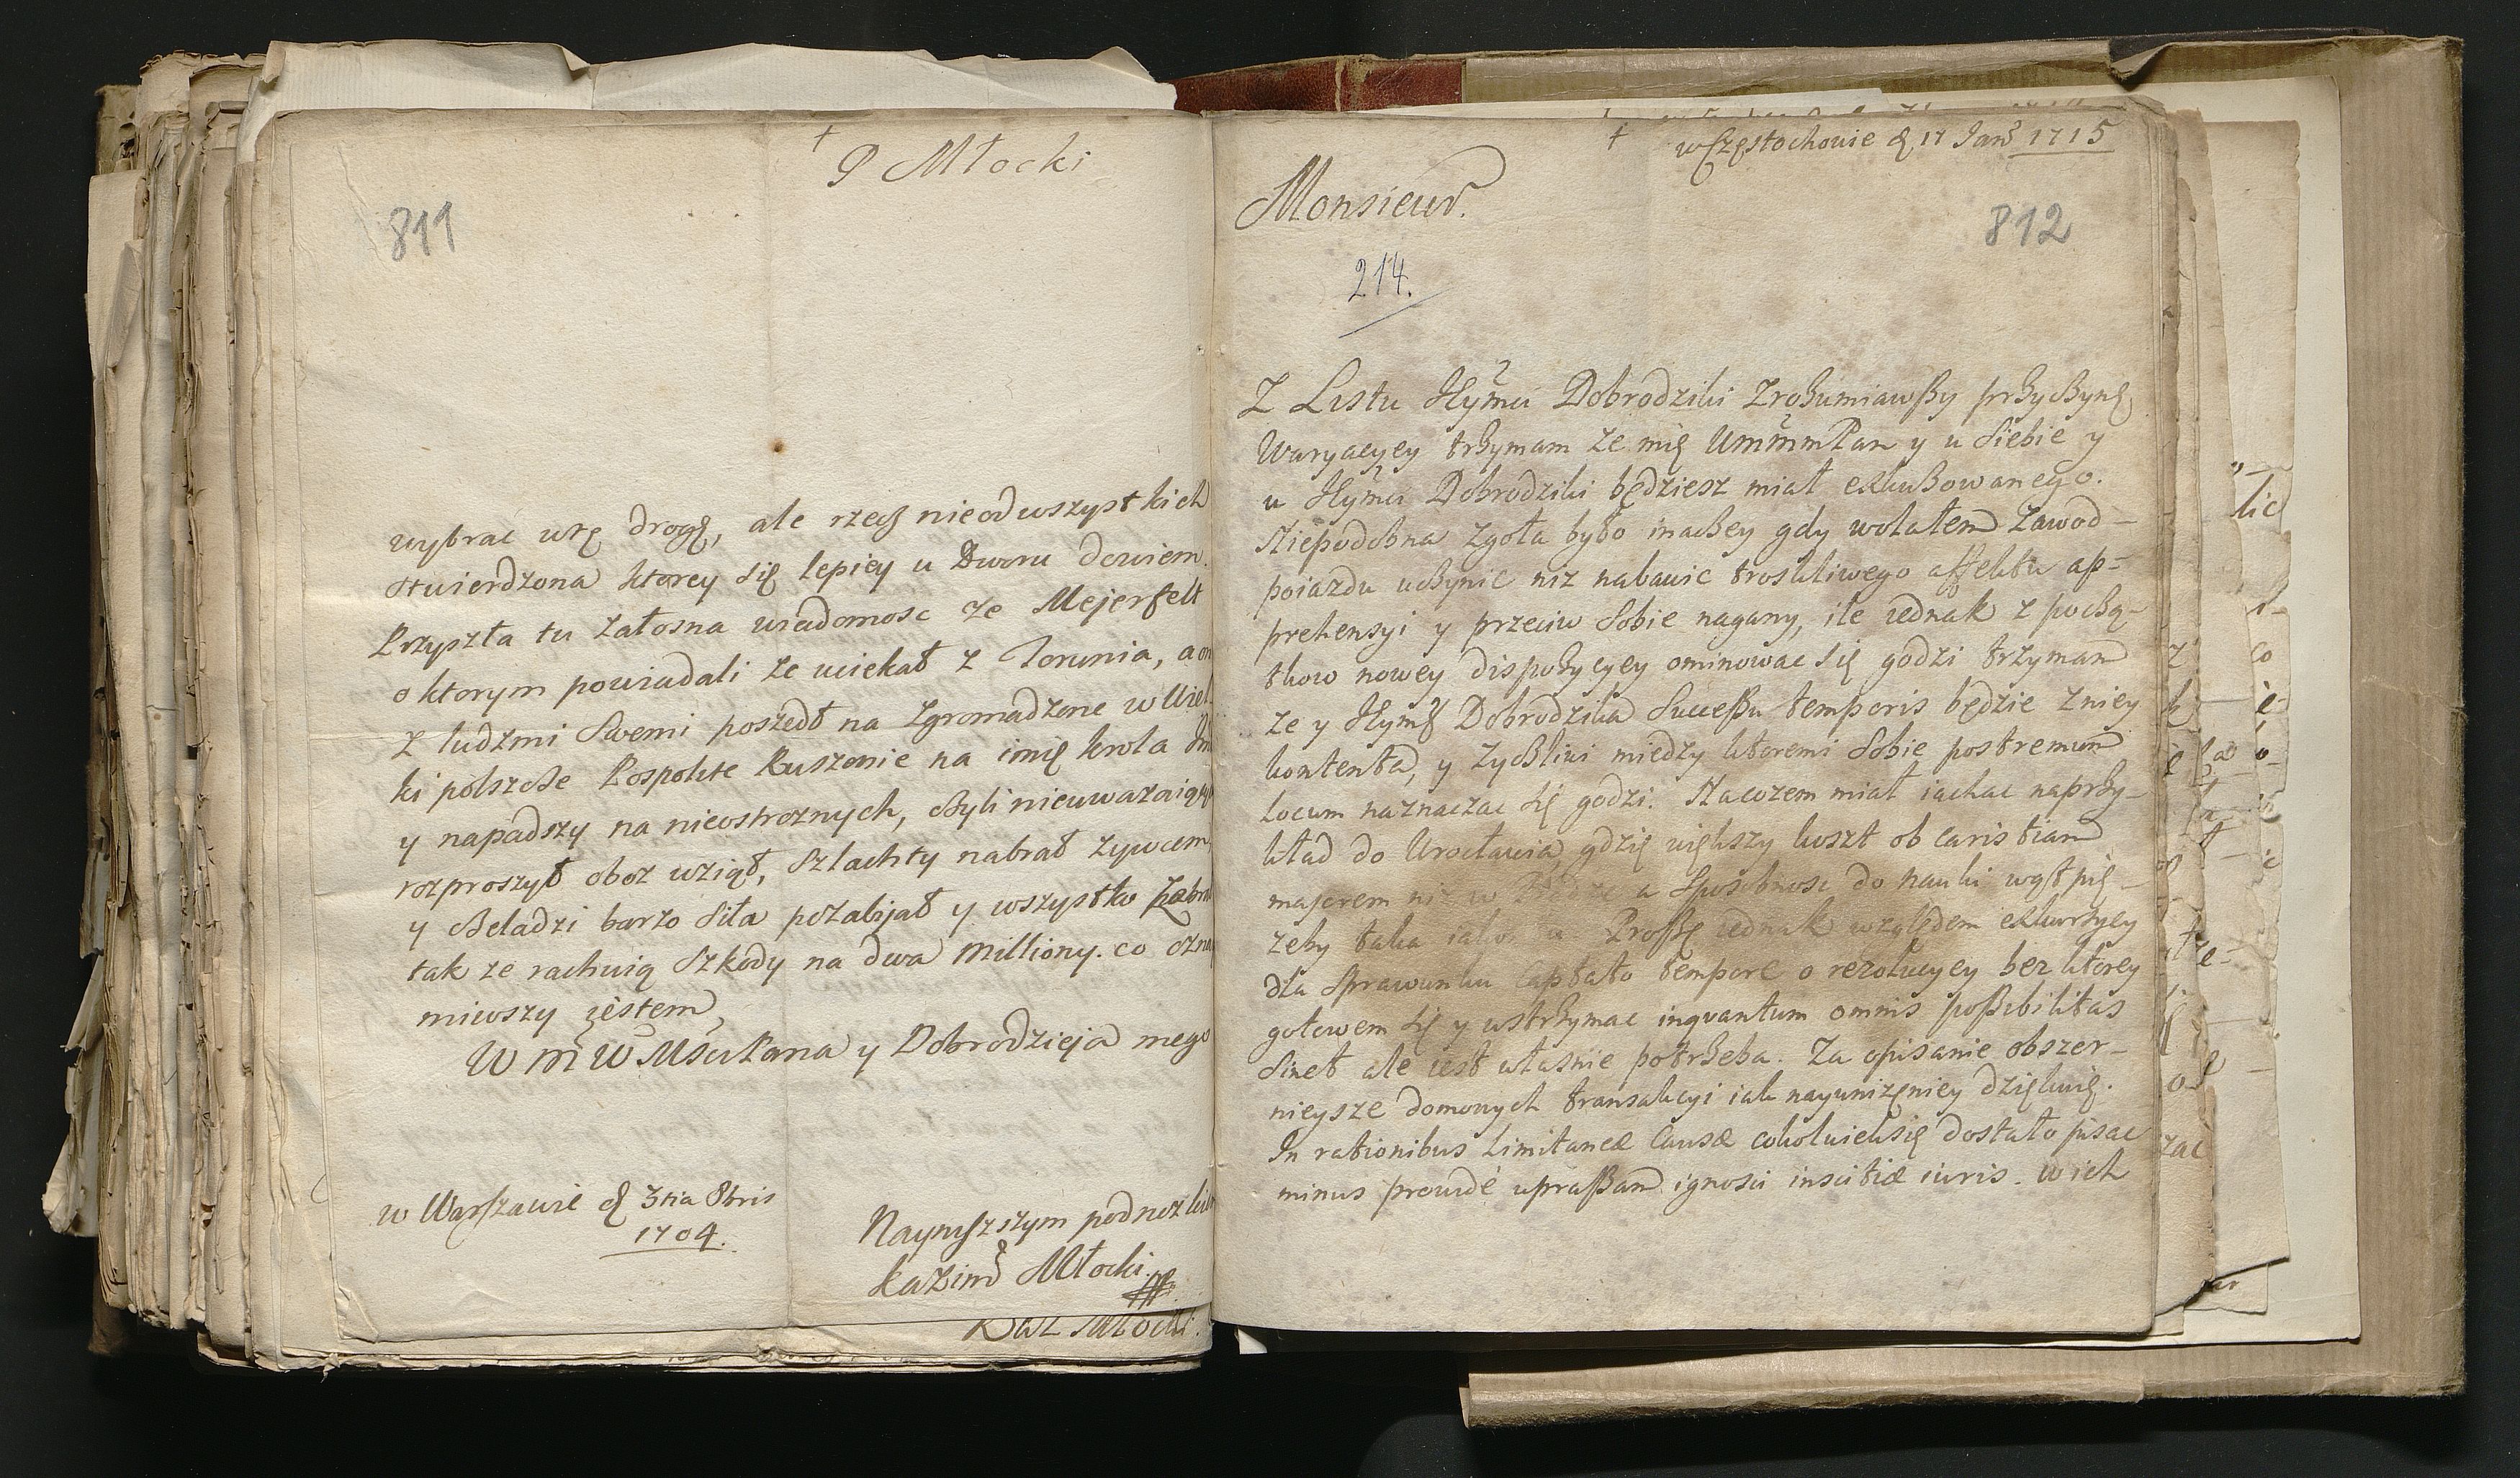 P Młocki
811
wybrac wtę drogę, ale rzecz nieodwszystkich
stwierdzona ktorey się lepiey u Dworu dowiem.
Przyszła tu załosna wiadomosc ze Mejerfelt
o ktorym powiadali ze uciekał z Torunia, a on
z ludzmi swemi poszedł na zgromadzone w Wiel
ki polszcze Pospolite Ruszenie na imię krola
y napadszy na nieostroznych, czyli nieuwazaiących
rozproszył oboz wziął, szlachty nabrał zywcem,
y czeladzi barzo siła pozabijał y wszystko
tak ze rachuią szkody na dwa milliony. co ozna
miwszy iestem,
W M W MsciPana y Dobrodzieja mego
w Warszawie d 3tia 8bris
1704.
Naynyszszym podnozkiem
Kazim Młocki
Kaz Młocki
w Częstochowie d 17 Jan 1715
Monsieur.
812
214.
Z Listu JeyMci Dobrodziki zrozumiawszy przyczynę
Waryacyey trzymam ze mię Pan y u siebie y
u JeyMci Dobrodziki będziesz miał exkuzowanego.
Niepodobna zgoła było inaczey gdy wolałem zawod-
poiazdu uczynic niz nabawic troskliwego affektu ap-
prehensyi y przeciw sobie nagany, ile iednak z począ-
tkow nowey dispozycyey ominowac się godzi trzymam
ze y JeyMć Dobrodzika successu temporis będzie zniey
kontenta, y zyczliwi miedzy ktoremi sobie postremum
locum naznaczac się godzi. Nacozem miał iachac naprzy-
kład do Wrocławia, gdzię większy koszt ob caristiam
majorem niz w a sposobnosc do nauki wątpię
zeby taka iako Proszę iednak względem exkurzyey
dla sprawunku captato tempore o rezolucyey bez ktorey
gotowem się y wstrzymac inqvantum omnis possibilitas
sinet ale iest własnie potrzeba. Za opisanie obszer-
nieysze domowych transakcyi iak nayunizęniey dziękuię.
In rationibus Limitaneæ Causæ cokolwieksię dostało pisac
minus proudè upraszam ignosci inscitiæ iuris. w ich